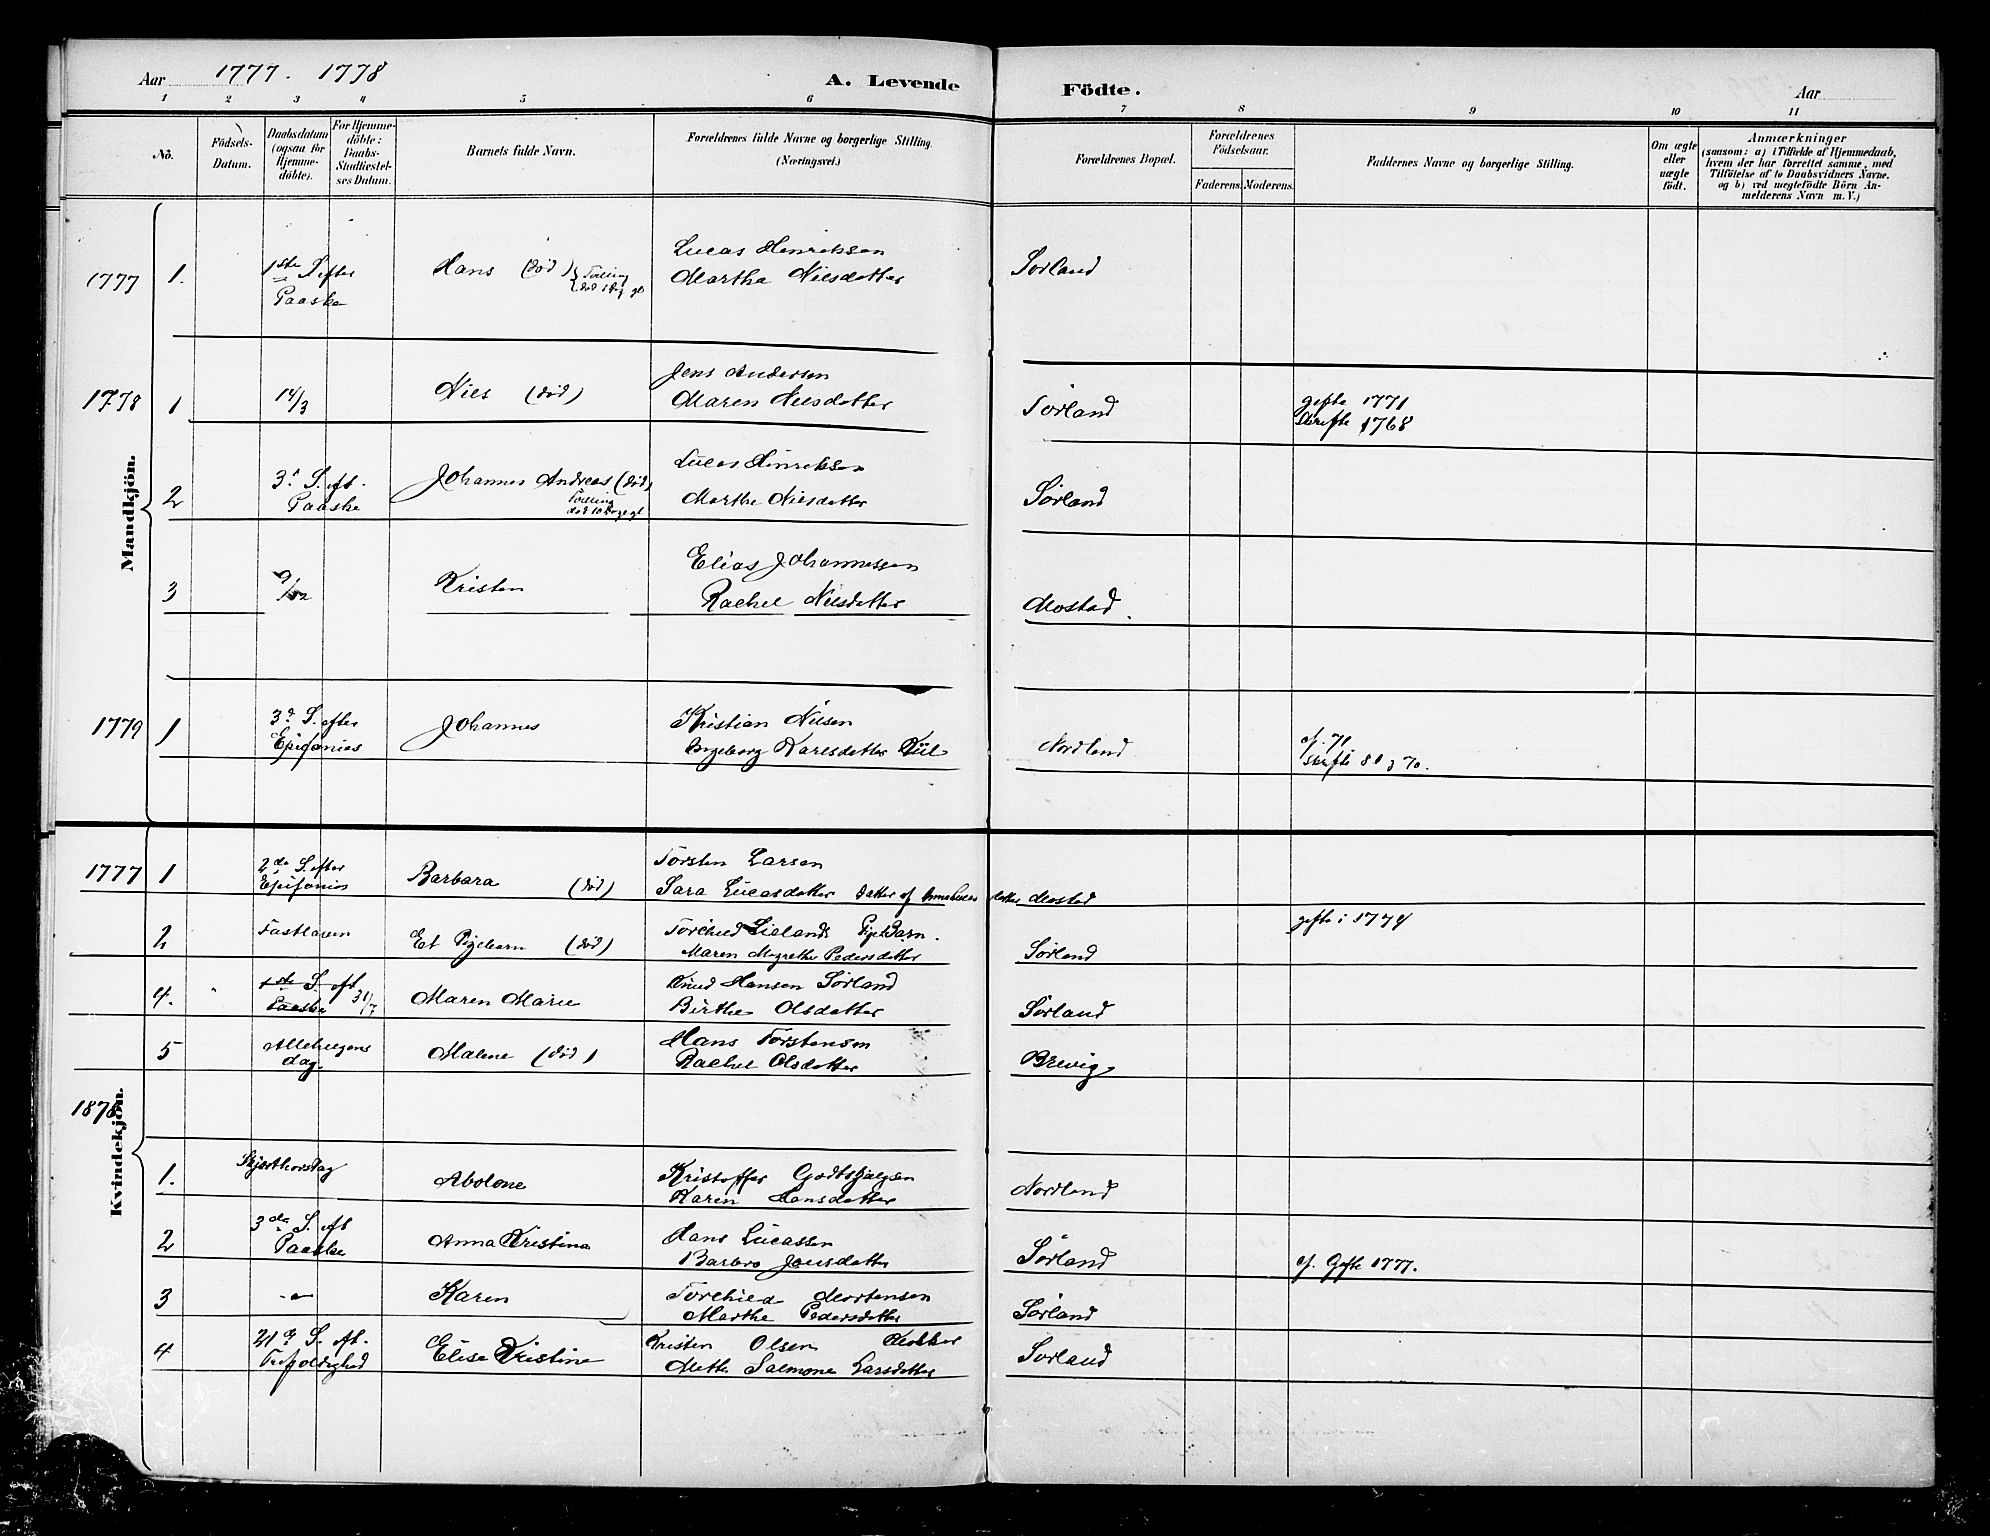 Aar 1777. 1778
A. Levende Födte.
Aar
1 2 3 4 5 6 7 8 9 10 11
No. Födsels-Datum. Daabsdatum (ogsaa för Hjemme-döbte). For Hjemme-döbte: Daabs-Stadfæstel-ses Datum. Barnets fulde Navn. Forældrenes fulde Navne og borgerlige Stilling. (Næringsvei.) Forældrenes Bopæl. Forældrenes Födselsaar. Faderens. Moderens. Faddernes Navne og borgerlige Stilling. Om ægte eller uægte födt. Anmærkninger (saasom: a) i Tilfælde af Hjemmedaab, hvem der har forrettet samme, med Tilföielse af to Daabsvidners Navne. og b) ved uægtefödte Börn An-melderens Navn m. V.)
Mandkjön.
1777 1. 1ste S. efter Paaske Hans (død) Tvilling død 1 Dag gl Lucas Henriksen
Martha Nilsdatter Sørland
1778 1 14/3 Nils (død) Jens Andersen
Maren Nilsdatter Sørland gifte 1771
skrifte 1768
2 3d S. eft. Paaske Johannes Andreas (død) Tvilling død 10 Dage gl Lucas Hinriksen
Marthe Nilsdatter Sørland
3 9/12 Kristen Elias Johannessen
Rachel Nilsdatter Mostad.
1779 1 3d S. efter Epifanias Johannes Kristian Nilsen
Ingeborg Karlsdatter Kiil Nordland cf. 71
skrifte 81 & 70.
Kvindekjön.
1777 1 2de S. efter Epifanias Barbara (død) Torsten Larsen
Sara Lucasdatter datter af Anne Lucasdatter Mostad
2 Fastlaven Et Pigebarn (død)
Maren Magrethe Pedersdatter Sørland gifte i 1774
4. 1ste S. eft Paaske 31/7 Maren Marie Knud Hansen Sørland
Birthe Olsdatter Sørland
5 Allehelgens dag. Malene (død) Hans Torstensen
Rachel Olsdatter Brevig
1878
1. Skjærthorsdag Abolone Kristoffer
Karen Hansdatter Nordland
2 3de S. eft Paaske Anna Kristina Hans Lucassen
Barbro Jensdatter Sørland cf. Gifte 1777.
3 -"- Karen Torchild Mortensen
Marthe Pedersdatter Sørland
4 21d S. eft. Trefoldighed Elise Kristine Kristen Olsen Klokker
Mette Salmone Larsdatter Sørland